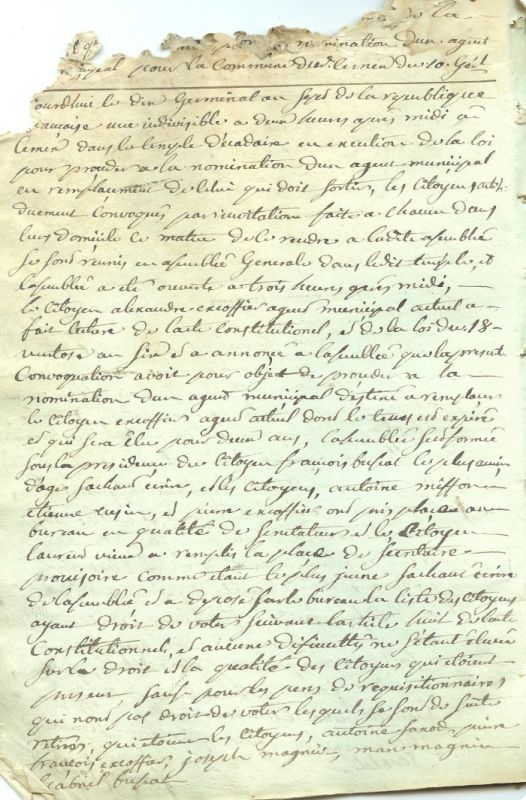 de la
pour la nomination dun agent
pal pour la Commune du 10
jourdhui le dix Germinal an Sept de la republique
ançaise une indivisible a deux heures après midi a
dans le temple décadaire en execution de la loi
pour proceder a la nomination dun agent municipal
en remplacement de Celui qui doit Sortir, les Citoyens
duement Convoqués par invitation faite a chacun dans
leurs domicile Ce matin de Se rendre a ladite assemblée
Se sont reunis en assemblée Generale dans ledit temple, et
lassemblée a été ouverte a trois heures après midi,
le Citoyen alexandre excoffier agent municipal actuel a
fait lecture de lacte Constitutionel, et de la loi du 18
ventose an Six et a annoncé a lassemblée que la presente
Convoquation avoit pour objet de proceder a la
nomination dun agent municipal destiné a remplacer
le Citoyen excoffier agent actuel dont le tems est expiré
et qui Sera élu pour deux ans, lassemblée Sest formée
Sous la presidence du Citoyen françois le plus ancien
dage Sachant écrire, et les Citoyens, antoine
etienne et pierre excoffier ont pris place au
bureau en qualité de Scrutateurs et le Citoyen
laurent a remplis la place de Secretaire
provisoire Comme etant le plus jeune Sachant écrire
de lassemblée et a déposé Sur le bureau la liste des Citoyens
ayant droit de voter Suivant larticle huit de lacte
Constitutionnel, et aucune dificultés ne Setant élevée
Sur le droit et la qualité des Citoyens qui etoient
present Sauf pour les gens de requisitionnaires
qui nont pas droit de voter lesquels se Sont de Suite
retirés, qui etoient les Citoyens, antoine pierre
françois excoffier, joseph magnin, marc magnin
Gabriel